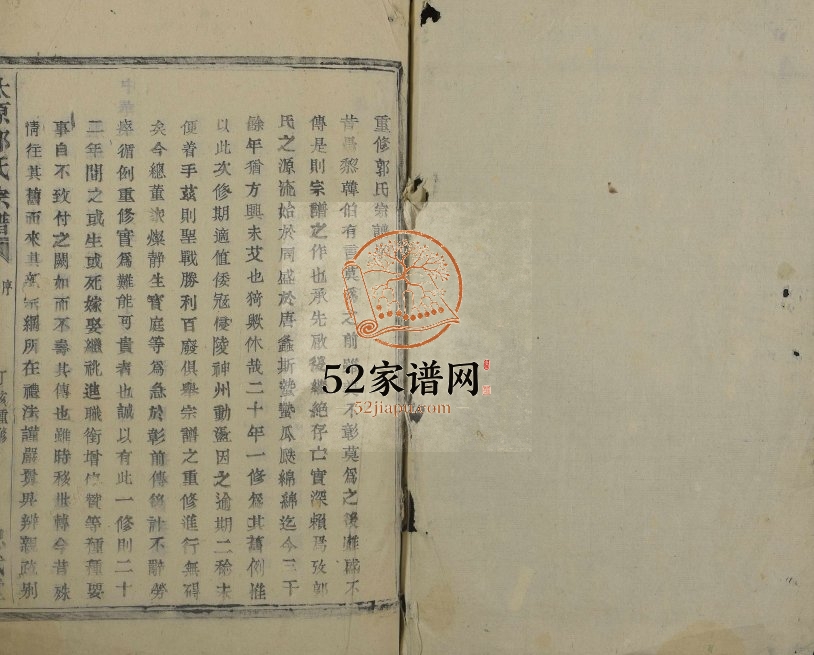 重修郭氏宗譜
昔昌黎韓伯有言莫爲之前雖不彰莫爲之後雖盛不
傳是則宗譜之作也承先啟後繼絕存亡實深賴焉攷郭
氏之源流始於周盛於唐螽斯蟄蟄瓜瓞綿綿迄今三千
餘年猶方興未艾也猗歟休哉二十年一修爲其舊例惟
以此次修期適值倭寇侵陵神州動盪因之逾期二稔未
便着手茲則聖戰勝利百廢俱舉宗譜之重修進行無礙
矣今總董燦靜生寶庭等爲急於彰前傳後計不辭勞
瘁循例重修實爲難能可貴者也誠以有此一修則二十
二年間之或生或死嫁娶繼祧進職銜增贊等種種要
事自不致付之闕如而不壽其傳也雖時移世轉今昔殊
情往其舊而來其新綱所在禮法謹嚴異昇辨親疏別
太原郭氏宗譜
序
丁亥重修
52家谱网
52jiapu.com